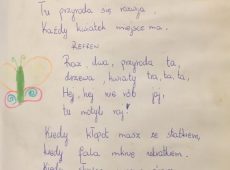 Tu przyroda się rozwija,
Każdy kwiatek miejsce ma.
REFREN
Raz, dwa, przyroda ta,
drzewa, kwiaty tra, ta, ta,
Hej, hej nie rób jej,
tu motyli raj!
Kiedy kłopot masz ze statkiem,
kiedy fala mknie